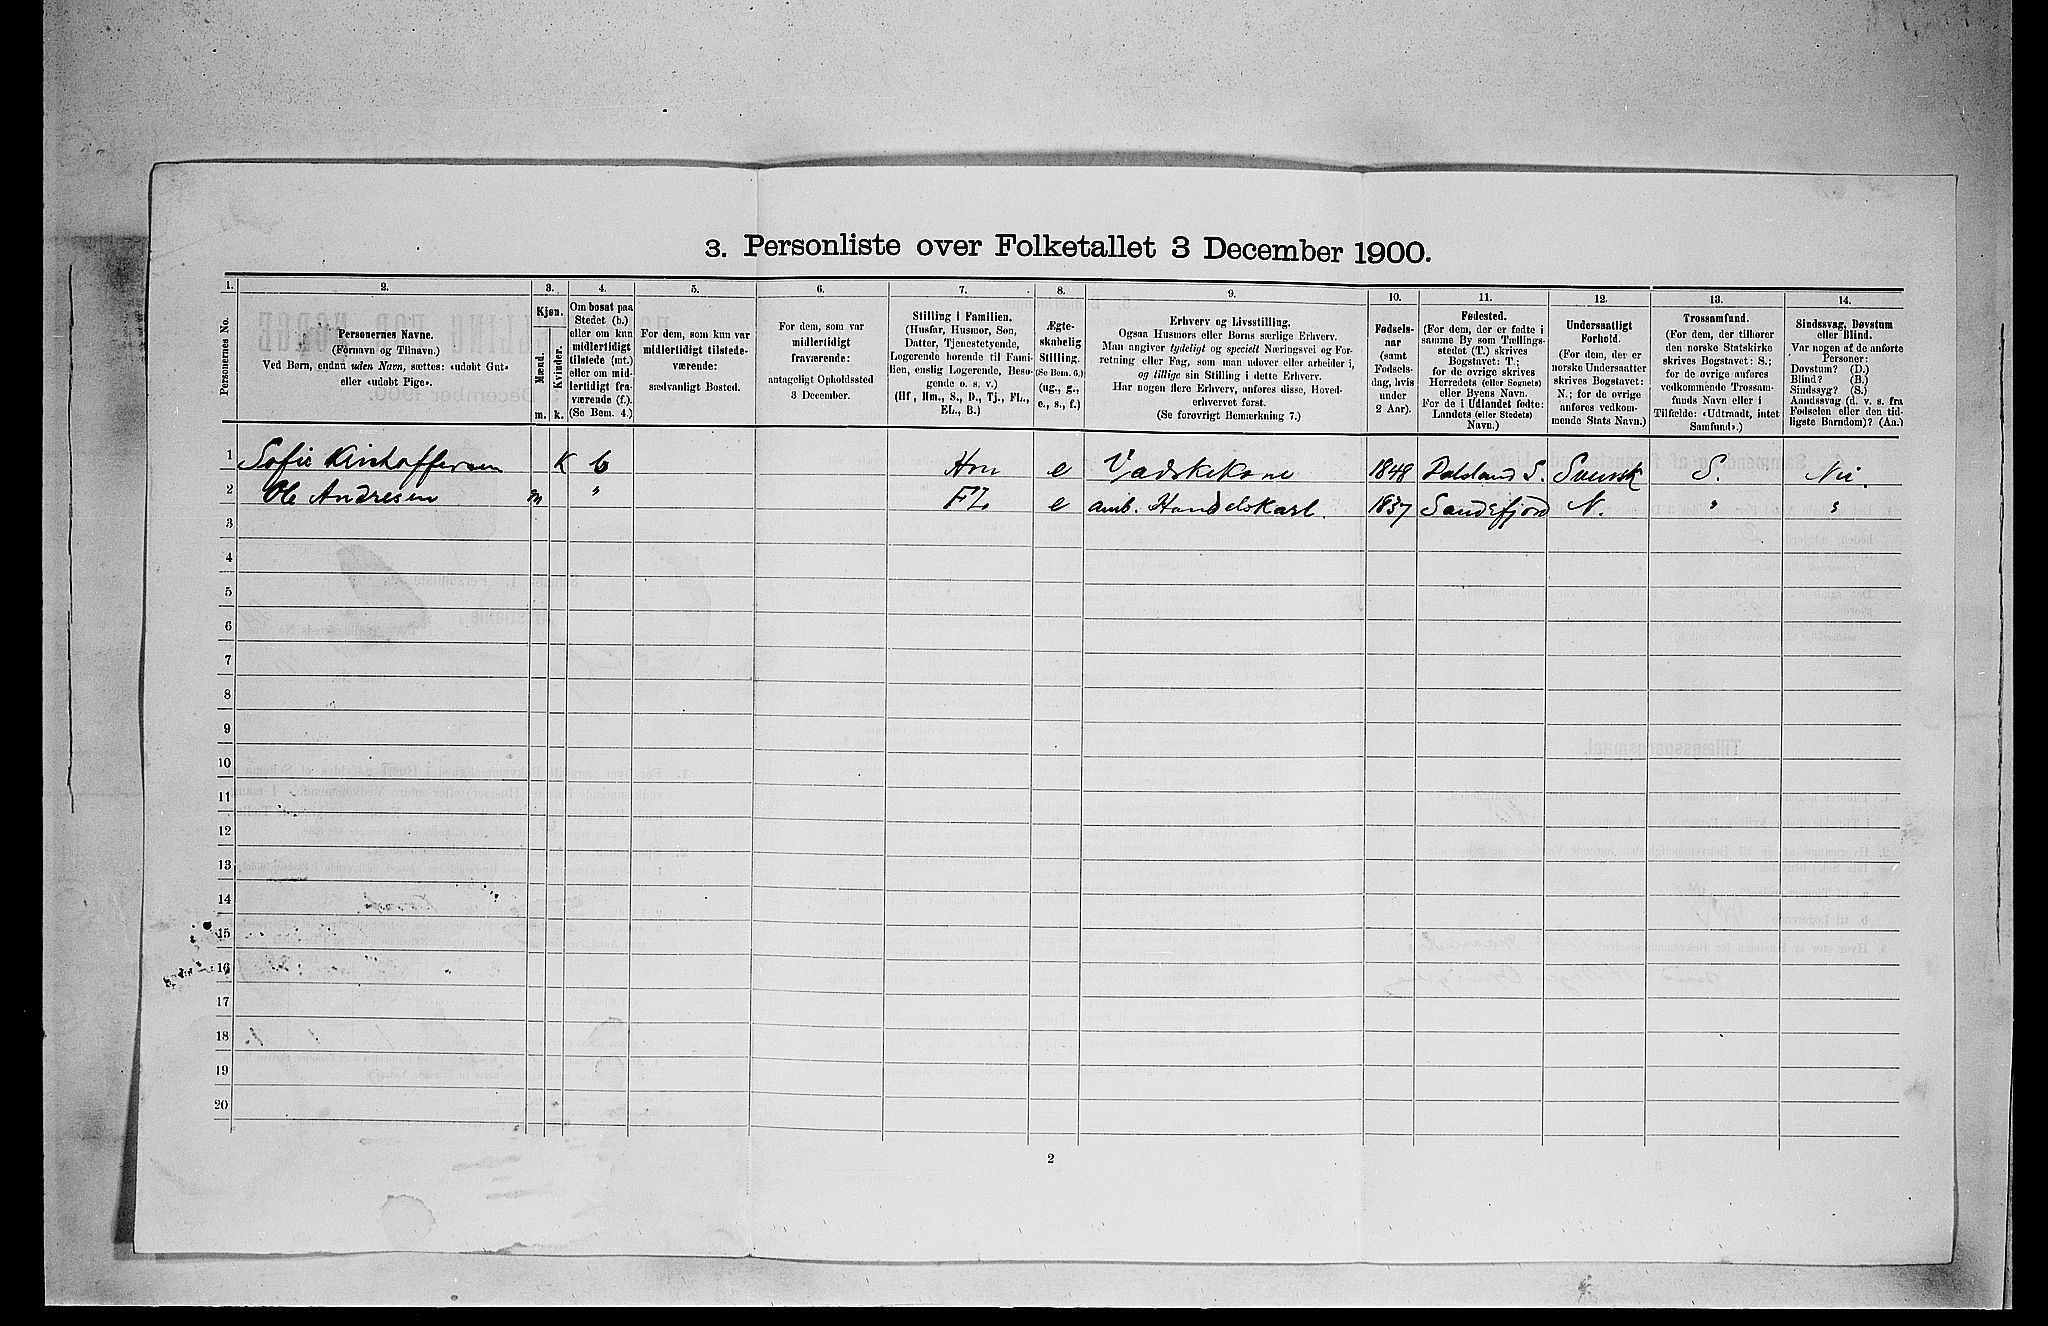 3. Personliste over Folketallet 3 December 1900.
1. 2. 3. 4. 5. 6. 7. 8. 9. 10. 11. 12. 13. 14.
Personernes No.
Personernes Navne.
(Fornavn og Tilnavn.)
Ved Børn, endnu uden Navn, sættes: «udøbt Gut»
eller «udøbt Pige».
Kjøn.
Mænd.
Kvinder.
m. k.
Om bosat paa
Stedet (b.)
eller om kun
midlertidigt
tilstede (mt.)
eller om mid-
lertidigt fra-
værende (f.).
(Se Bem. 4.)
For dem, som kun var
midlertidigt tilstede-
værende:
sædvanligt Bosted.
For dem, som var
midlertidigt
fraværende:
antageligt Opholdssted
3 December.
Stilling i Familien.
(Husfar, Husmor, Søn,
Datter, Tjenestetyende,
Logerende hørende til Fami-
lien, enslig Logerende, Besø-
gende o. s. v.)
(Hf, Hm., S., D., Tj., FL.,
EL., B.)
Ægte-
skabelig
Stilling.
(Se Bem. 6.)
(ug., g.,
e., s., f.)
Erhverv og Livsstilling.
Ogsaa Husmors eller Børns særlige Erhverv.
Man angiver tydeligt og specielt Næringsvei og For-
retning eller Fag, som man udøver eller arbeider i,
og tillige sin Stilling i dette Erhverv.
Har nogen flere Erhverv, anføres disse, Hoved-
erhvervet først.
(Se forøvrigt Bemærkning 7.)
Fødsels-
aar
(samt
Fødsels-
dag, hvis
under
2 Aar).
Fødested.
(For dem, der er fødte i
samme By som Tællings-
stedet (T.) skrives
Bogstavet: T.;
for de øvrige skrives
Herredets (eller Sognets)
eller Byens Navn.
For de i Udlandet fødte:
Landets (eller Stedets)
Navn.)
Undersaatligt
Forhold.
(For dem, der er
norske Undersaatter
skrives Bogstavet:
N.; for de øvrige
anføres vedkom-
mende Stats Navn.)
Trossamfund.
(For dem, der tilhører
den norske Statskirke
skrives Bogstavet: S.;
for de øvrige anføres
vedkommende Trossam-
funds Navn eller i
Tilfælde: «Udtraadt, intet
Samfund».)
Sindssvag, Døvstum
eller Blind.
Var nogen af de anførte
Personer:
Døvstum? (D.)
Blind? (B.)
Sindssyg? (S.)
Aandssvag (d. v. s. fra
Fødselen eller den tid-
ligste Barndom)? (Aa.)
1 Sofie Kristoffersen K b Hm e Vadskekone 1848 Dalsland S. Svensk S. Nei.
2 Ole Andresen m " FL e amb. Handelskarl. 1837 Sandefjord N. " "
3
4
5
6
7
8
9
10
11
12
13
14
15
16
17
18
19
20
2